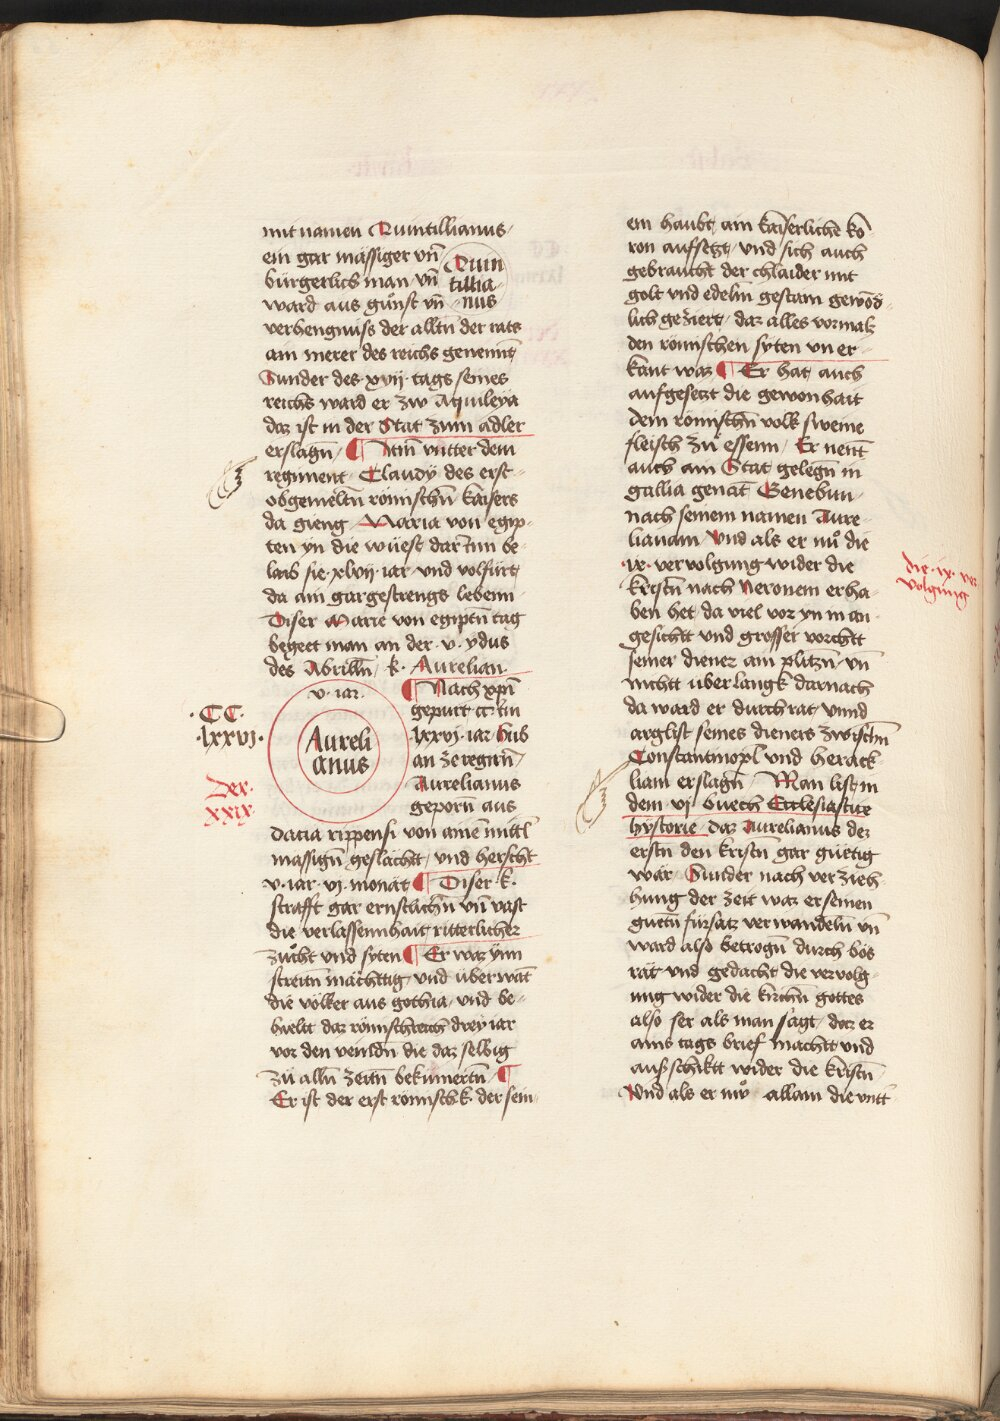 mit namen Quintillianus /
ein gar mässiger vn̄
bürgerlich man / vn̄
ward aus gu̇nst vn̄
Quin
tillia-
nus
verhengnüss der alltn̄ der rats
ain merer des reichs genennt
Sunder des xvij tags seines
reichs ward er zw Aquileya
daz ist in der Stat zum adler
erslagn̄ / ¶ Itm̄ vntter dem
regiment Claudÿ des erst-
obgemeltn̄ römischn̄ kaisers
da gieng Maria von egip-
ten yn die wüest darinn be-
laib sie xlvij iar vnd volfürt
da ain gar gestrengs lebenn
Diser Marie von egiptn̄ tag
begeet man an der v ydus
des Abrilln̄ / k. Aurelian
v iar
Aureli
anus
· CC ·
· lxxvj ·
Der
xxix
¶ Nach xp̄i
gepurt cc im
lxxvj iar hub
an ze regirn̄
Aurelianus
geporn̄ aus
dacia rippensi von aine mittl
massign̄ geslächtt / vnd herscht
v iar vj monat ¶ Diser k.
strafft gar ernstlichn̄ vn̄ vast
die verlassennhait ritterlicher
zücht vnd syten ¶ Er waz ynn
streitn̄ mächttig / vnd überwāt
die völker aus gothia / vnd be-
hieltt daz römisch reich drey iar
vor den veindn̄ die daz selbig
zu alln̄ zeitn̄ bekümertn̄ ¶
Er ist der erst römisch k. der sein
em haubt ain kaiserliche kō-
ron aufsetzt / vnd sich auch
gebraucht der chlaider mit
golt vnd edelm gestain gewön
lich geziert / daz alles vormals
den römischen syten vn er-
kant waz ¶ Er hat auch
aufgesetzt die gewonhait
dem römischn̄ volk sweine
fleisch zu essenn / Er nent
auch ain Stat gelegn̄ in
gallia genāt Genebum
nach seinem namen Aure-
lianam / Vnd als er nu̇ die
·ix· vervolgung wider die
kristn̄ nach Neronem erha-
ben het da viel vor yn in an
gesichtt vnd grosser vorchtt
seiner diener ain plitzn̄ vn̄
nichtt über langk darnach
da ward er durch rat vnnd
arglist seines dieners zwischn̄
Constantinopl vnd herack-
liam erslagn̄ / Man list in
dem vj buech Ecclesiastice
hÿstorie / daz Aurelianus der
erstn̄ den kristn̄ gar gürtig
war / Sunder nach verzieh-
hung der zeit waz er seinen
guetn̄ fürsatz verwandeln̄ vn̄
ward also betrogn̄ durch bös
rät vnd gedacht die vervolg-
ung wider die kirchn̄ gottes
also ser als man sagt / daz er
ains tags brief machtt vnd
auß schiktt wider die kristn̄
Vnd als er nw allain die vntt-
die · ix · ver
volgüng